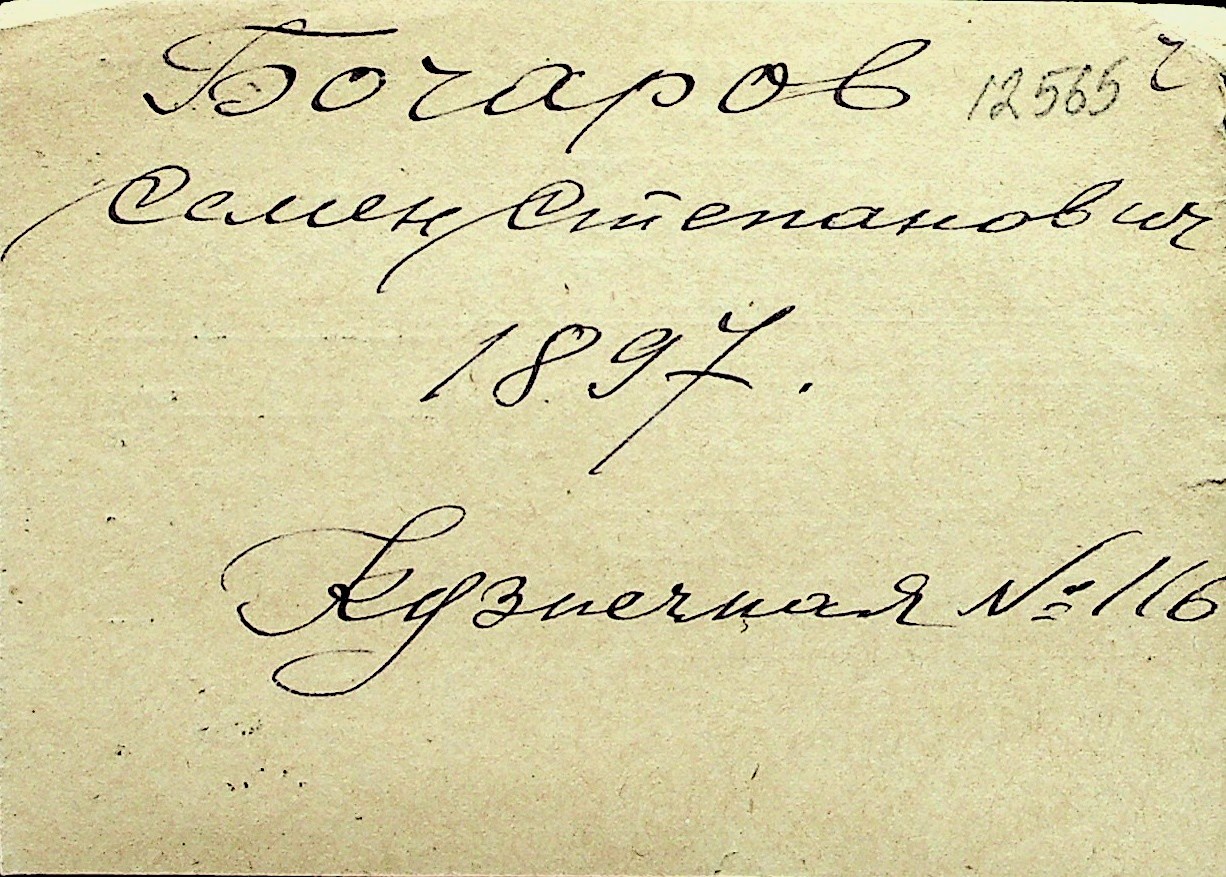 Бочаров 12565 ч
Семен Степанович
1897.
Кузнечная № 116